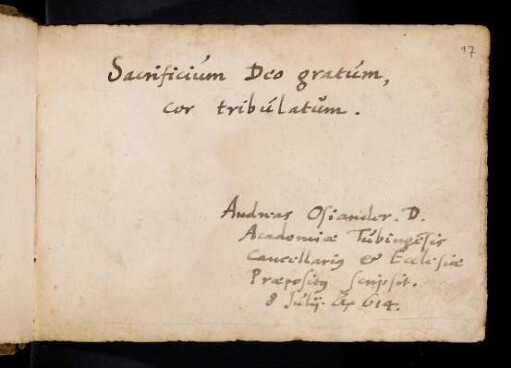 17
Sacrificiúm Deo gratúm,
cor tribúlatúm.
Andreas Osiander. D.
Academiæ Túbingẽsis
Cancellariꝰ & Ecclesiæ
Præpositꝰ scripsit.
8 Júlij. Aº 614.